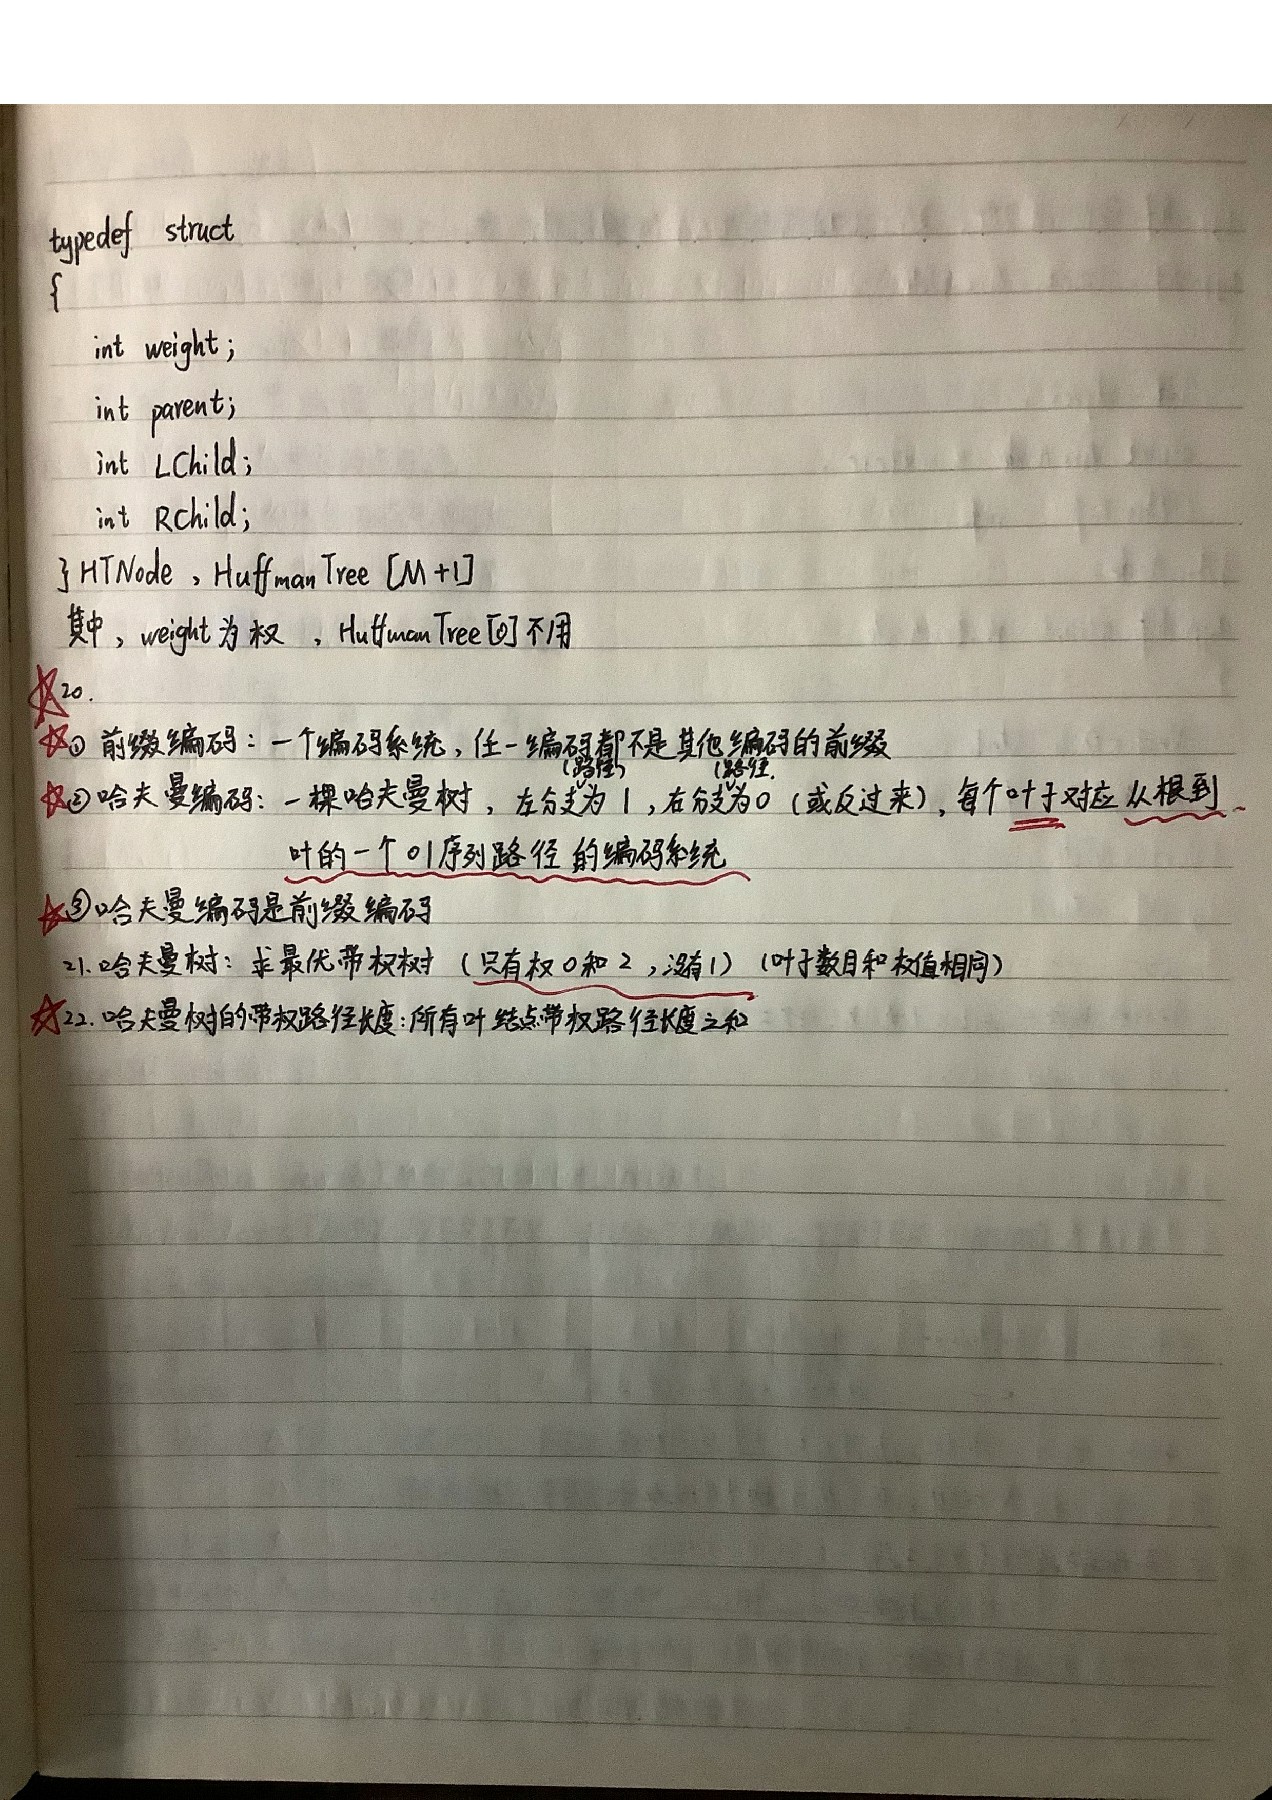 typedef struct
{
int weight;
int parent;
int LChild;
int RChild;
} HTNode , HuffmanTree [M+1]
其中, weight为权 , HuffmanTree[0]不用
20.
① 前缀编码: 一个编码系统, 任一编码都不是其他编码的前缀
(路径) (路径.
②哈夫曼编码: 一棵哈夫曼树, 左分支为1, 右分支为0 (或反过来), 每个叶子对应从根到
叶的一个01序列路径的编码系统
③哈夫曼编码是前缀编码
21.哈夫曼树: 求最优带权树 (只有权0和2, 没有1) (叶子数目和权值相同)
22.哈夫曼树的带权路径长度:所有叶结点带权路径长度之和